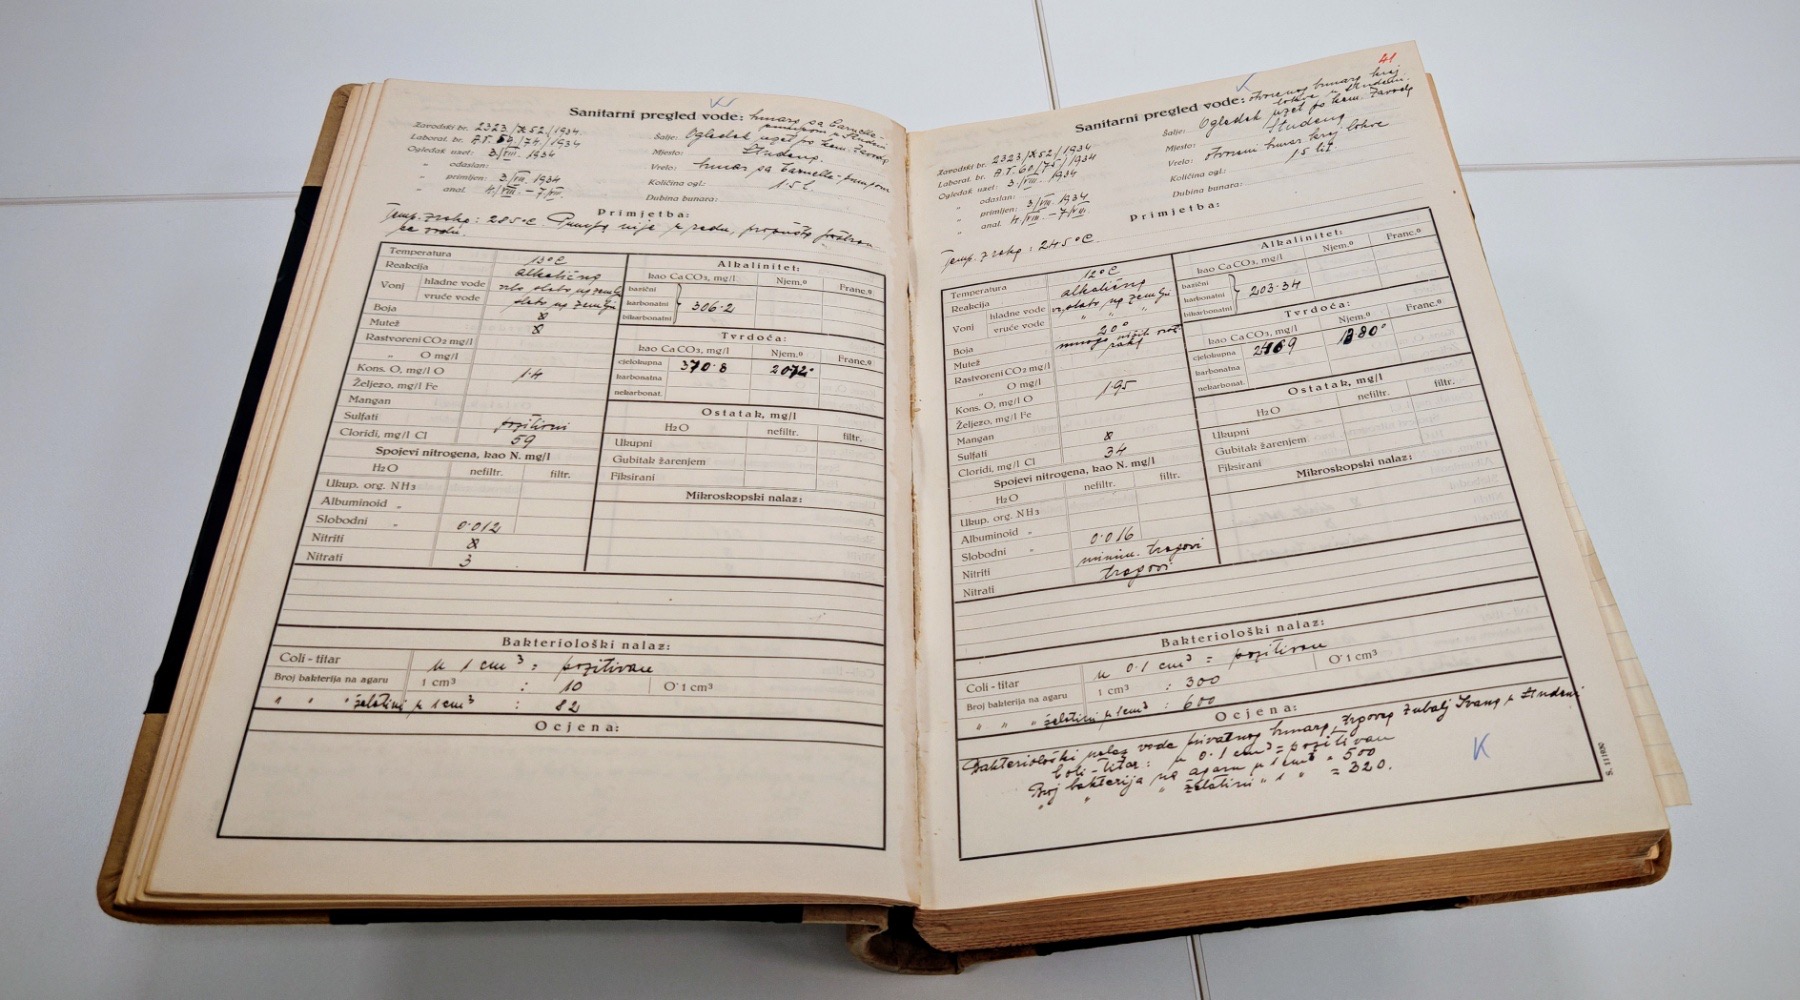 Sanitarni pregled vode: bunara sa Carnelle-
pumpom u Studeni
Zavodski br. 2323/X52/1934.
Laborat. br. A.T. 59/74/1934
Ogledak uzet: 3./VIII. 1934
" odaslan:
" primljen: 3./VIII. 1934
" anal. 4./VIII. – 7./VIII.
Šalje: Ogledak uzet po kem. Zavoda
Mjesto: Studena.
Vrelo: bunar sa Carnelle-pumpom
Količina ogl: 1.5 l
Dubina bunara:
Primjetba:
Temp. zraka: 28.5°C. Pumpa nije u redu, propušta
Temperatura 13°C
Reakcija alkalična
Vonj hladne vode vrlo slabo na zemlju
vruće vode slabo na zemlju
Boja
Mutež
Rastvoreni CO2 mg/l
" O mg/l
Kons. O, mg/l O 1.4
Željezo, mg/l Fe
Mangan
Sulfati pozitivni
Cloridi, mg/l Cl 59
Spojevi nitrogena, kao N. mg/l
H2O nefiltr. filtr.
Ukup. org. NH3
Albuminoid "
Slobodni " 0.012
Nitriti
Nitrati 3
Alkalinitet:
kao CaCO3, mg/l Njem.º Franc.º
bazični
karbonatni 306.2
bikarbonatni
Tvrdoća:
kao CaCO3, mg/l Njem.º Franc.º
cjelokupna 370.8 20.72°
karbonatna
nekarbonat.
Ostatak, mg/l
H2O nefiltr. filtr.
Ukupni
Gubitak žarenjem
Fiksirani
Mikroskopski nalaz:
Bakteriološki nalaz:
Coli - titar u 1 cm³ = pozitivan
Broj bakterija na agaru 1 cm³ : 10 O'1 cm³
" " " želatini u 1 cm³ : 82
Ocjena:
41
Sanitarni pregled vode: otvorenog bunara kraj
lokve u Studeni.
Zavodski br. 2323/X52/1934
Laborat. br. A.T. 60/75/1934
Ogledak uzet: 3./VIII. 1934
" odaslan:
" primljen: 3./VIII. 1934
" anal. 4./VIII. – 7./VIII.
Šalje: Ogledak uzet po kem. Zavoda
Mjesto: Studena
Vrelo: otvoreni bunar kraj lokve
Količina ogl: 1.5 lit
Dubina bunara:
Primjetba:
Temp. zraka: 24.5°C.
Temperatura 12°C
Reakcija alkalična
Vonj hladne vode slabo na zemlju
vruće vode " " "
Boja 20°
Mutež mnogo
Rastvoreni CO2 mg/l
" O mg/l
Kons. O, mg/l O 1.95
Željezo, mg/l Fe
Mangan
Sulfati
Cloridi, mg/l Cl 34
Spojevi nitrogena, kao N. mg/l
H2O nefiltr. filtr.
Ukup. org. NH3
Albuminoid "
Slobodni " 0.016
Nitriti minim. tragovi
Nitrati tragovi
Alkalinitet:
kao CaCO3, mg/l Njem.º Franc.º
bazični
karbonatni 203.34
bikarbonatni
Tvrdoća:
kao CaCO3, mg/l Njem.º Franc.º
cjelokupna
karbonatna
nekarbonat.
Ostatak, mg/l
H2O nefiltr. filtr.
Ukupni
Gubitak žarenjem
Fiksirani
Mikroskopski nalaz:
Bakteriološki nalaz:
Coli - titar u 0.1 cm³ = pozitivan
Broj bakterija na agaru 1 cm³ : 300 O'1 cm³
" " " želatini u 1 cm³ : 600
Ocjena:
Bakteriološki nalaz vode privatnog bunara, Zubalj Ivana u Studeni
Coli-titar: u 0.1 cm³ = pozitivan
Broj bakterija na agaru u 1 cm³ = 500
" " " želatini " 1 " = 320.
K
S. 11/1930